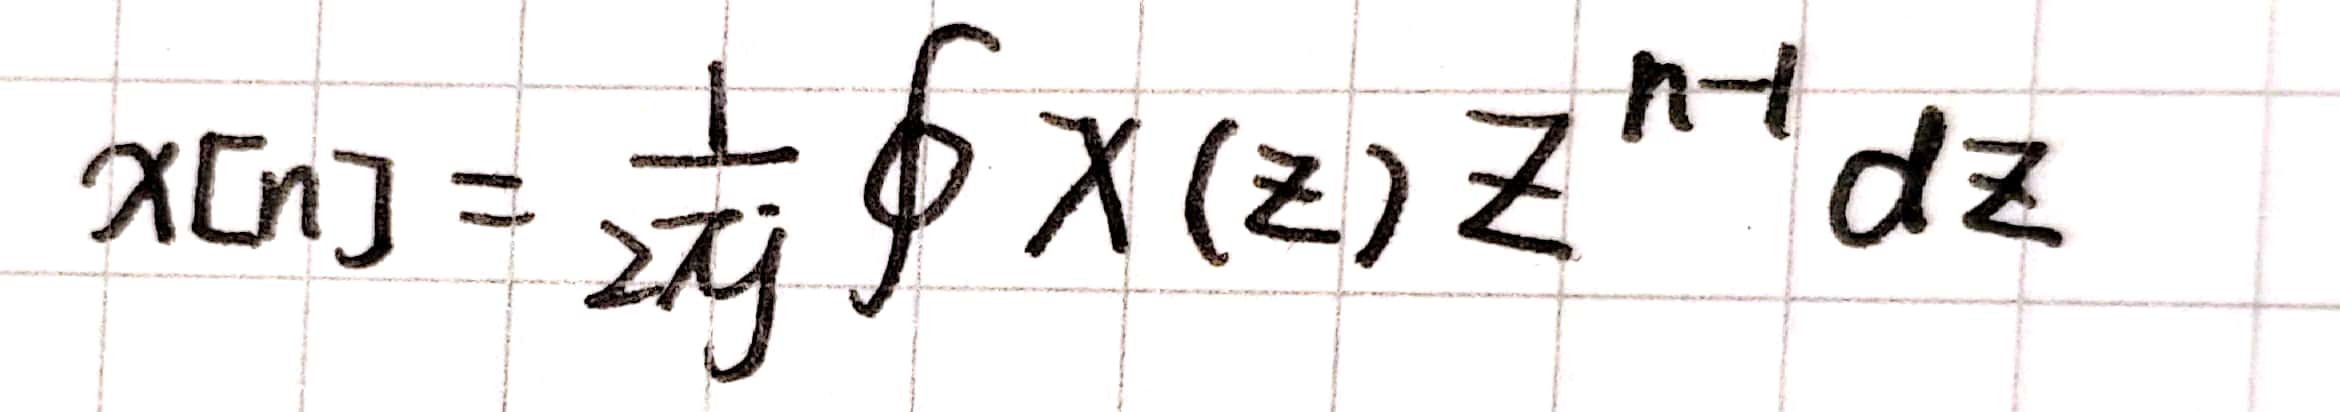 x[n] = \frac{1}{2\pi j} \oint X(z) z^{n-1} dz